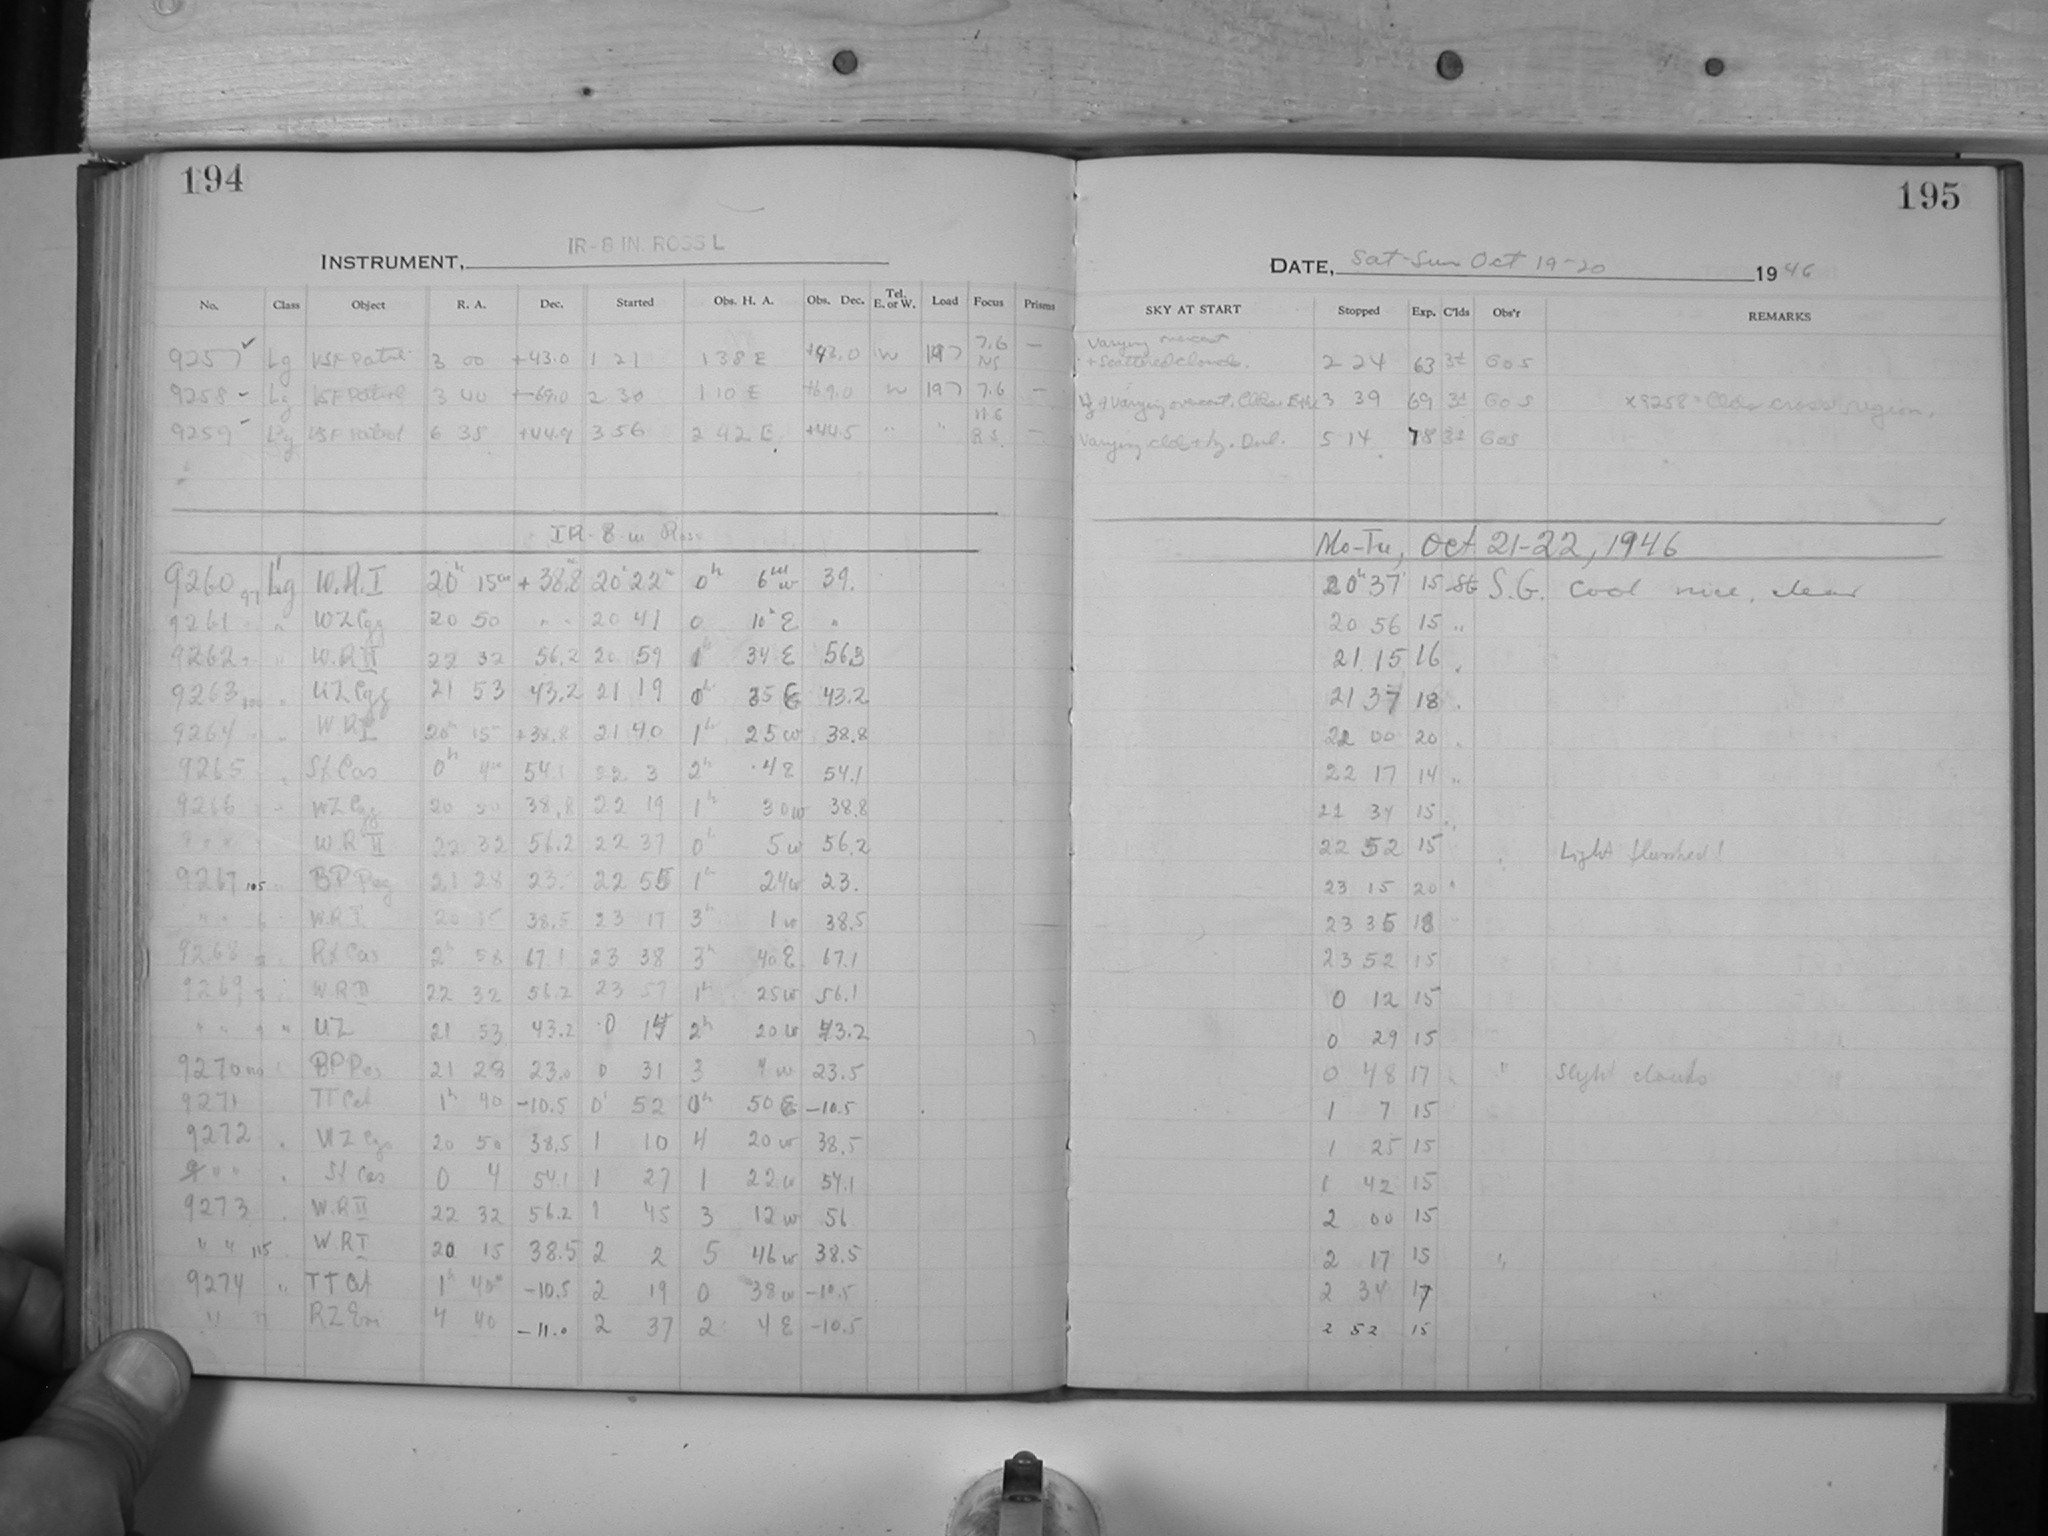 194
195
INSTRUMENT, IR-8 IN. ROSS L
DATE, Sat-Sun Oct 19-20 1946
No. Class Object R. A. Dec. Started Obs. H. A. Obs. Dec. Tel. E. or W. Load Focus Prisms SKY AT START Stopped Exp. C'lds Obs'r REMARKS
9257 Lg VSF Patrol 3 00 +43.0 1 21 1 38 E +43.0 W 197 7.6 NS — Varying overcast + scattered clouds. 2 24 63 GoS
9258 - Lg VSF Patrol 3 40 +69.0 2 30 1 10 E +69.0 W 197 7.6 — varying overcast. 3 39 69 GoS x9258 = Clds cross region.
9259 - Lg VSF Patrol 6 38 +44.9 3 56 2 42 E +44.5 " " — Varying clds + hz. 5 14 78 GoS
IR-8 in Ross
Mo-Tu, Oct 21-22, 1946
9260 97 Lg W.R.I 20h 15m +38.8 20h 22m 0h 6m w 39. 20h 37 15 S.G. Cool nice, clear
9261 " WZ Cyg 20 50 " " 20 41 0 10 E " 20 56 15 "
9262 " W.R II 22 32 56.2 20 59 1h 34 E 56.3 21 15 16
9263 " UZ Cyg 21 53 43.2 21 19 0h 35 E 43.2 21 37 18
9264 " W R I 20h 15m +38.8 21 40 1h 25 w 38.8 22 00 20
9265 " SX Cas 0h 4m 54.1 22 3 2h 4 E 54.1 22 17 14 "
9266 " WZ Cyg 20 50 38.8 22 19 1h 30 w 38.8 22 34 15
" " " W.R II 22 32 56.2 22 37 0h 5 w 56.2 22 52 15 Light flashed!
9267 105 BP Peg 21 28 23. 22 55 1h 24 w 23. 23 15 20 "
" " 6 W.R I 20 15 38.5 23 17 3h 1 w 38.5 23 35 18
9268 RX Cas 2h 58 67.1 23 38 3h 40 E 67.1 23 52 15
9269 W.R II 22 32 56.2 23 57 1h 25 w 56.1 0 12 15
" " 9 " UZ 21 53 43.2 0 14 2h 20 w 43.2 0 29 15
9270 110 BP Peg 21 28 23.0 0 31 3 4 w 23.5 0 48 17 " Slight clouds
9271 TT Cet 1h 40 -10.5 0 52 0h 50 E -10.5 1 7 15
9272 WZ Cyg 20 50 38.5 1 10 4 20 w 38.5 1 25 15
" " SX Cas 0 4 54.1 1 27 1 22 w 54.1 1 42 15
9273 W.R II 22 32 56.2 1 45 3 12 w 56 2 00 15
" " 115 W.R I 20 15 38.5 2 2 5 46 w 38.5 2 17 15 "
9274 " TT Cet 1h 40m -10.5 2 19 0 38 w -10.5 2 34 17
" " RZ Eri 4 40 -11.0 2 37 2 4 E -10.5 2 52 15